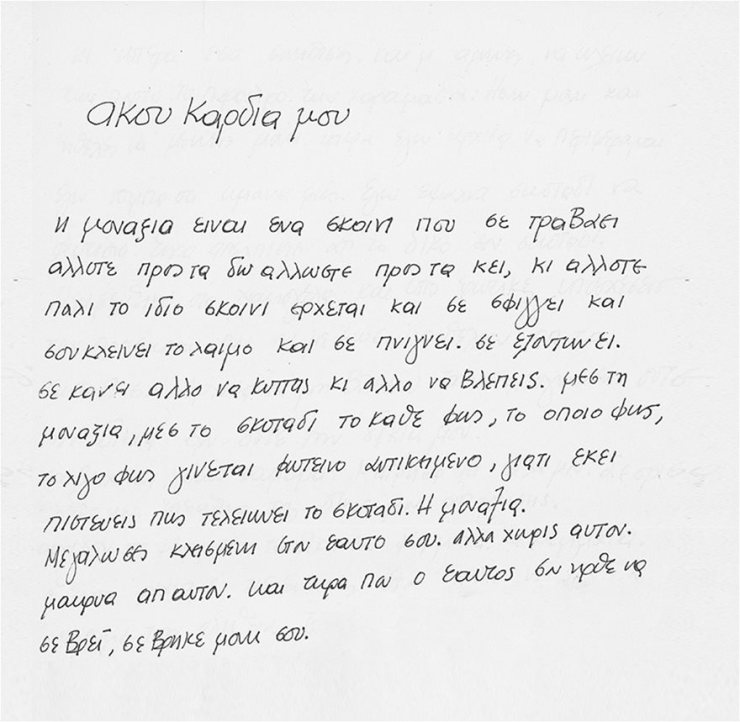 ακου καρδια μου
Η μοναξια ειναι ενα σκοινι που σε τραβαει
αλλοτε προς τα δω αλλωστε προς τα κει, κι αλλοτε
παλι το ιδιο σκοινι ερχεται και σε σφιγγει και
σου κλεινει το λαιμο και σε πνιγνει. σε εξοντωνει.
σε κανει αλλο να κυττας κι αλλο να βλεπεις. μες τη
μοναξια, μες το σκοταδι το καθε φως, το οποιο φως,
το λιγο φως γινεται φωτεινο αντικειμενο, γιατι εκει
πιστευεις πως τελειωνει το σκοταδι. Η μοναξια.
Μεγαλωσες κλεισμενη στον εαυτο σου. αλλα χωρις αυτον.
μακρυα απ αυτον. και τωρα που ο εαυτος σου ηρθε να
σε βρει, σε βρηκε μονη σου.